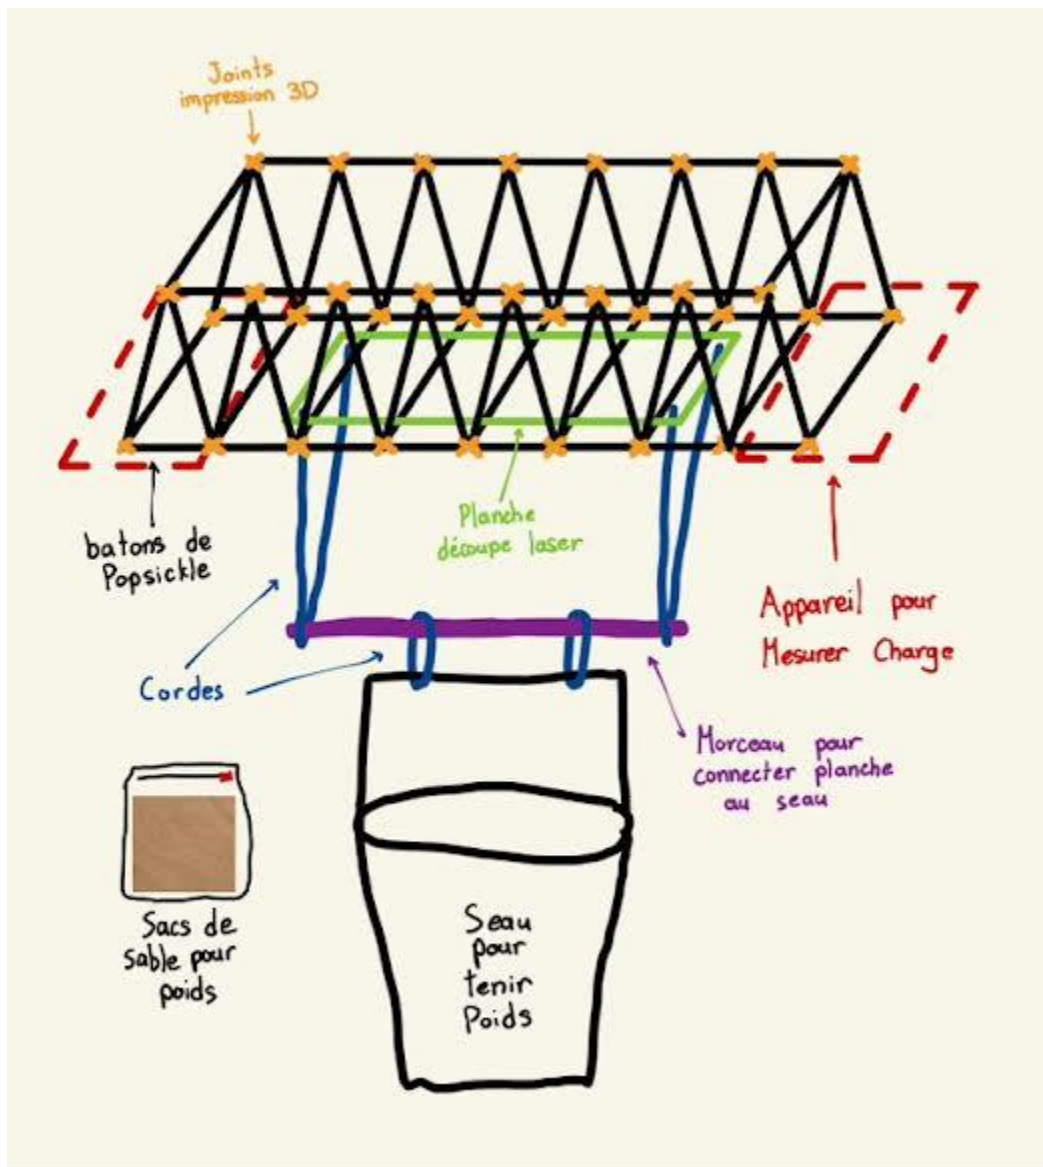 Joints
impression 3D
Planche
découpe laser
batons de
Popsickle
Appareil pour
Mesurer Charge
Cordes
Morceau pour
connecter planche
au seau
Sacs de
sable pour
poids
Seau
pour
tenir
Poids